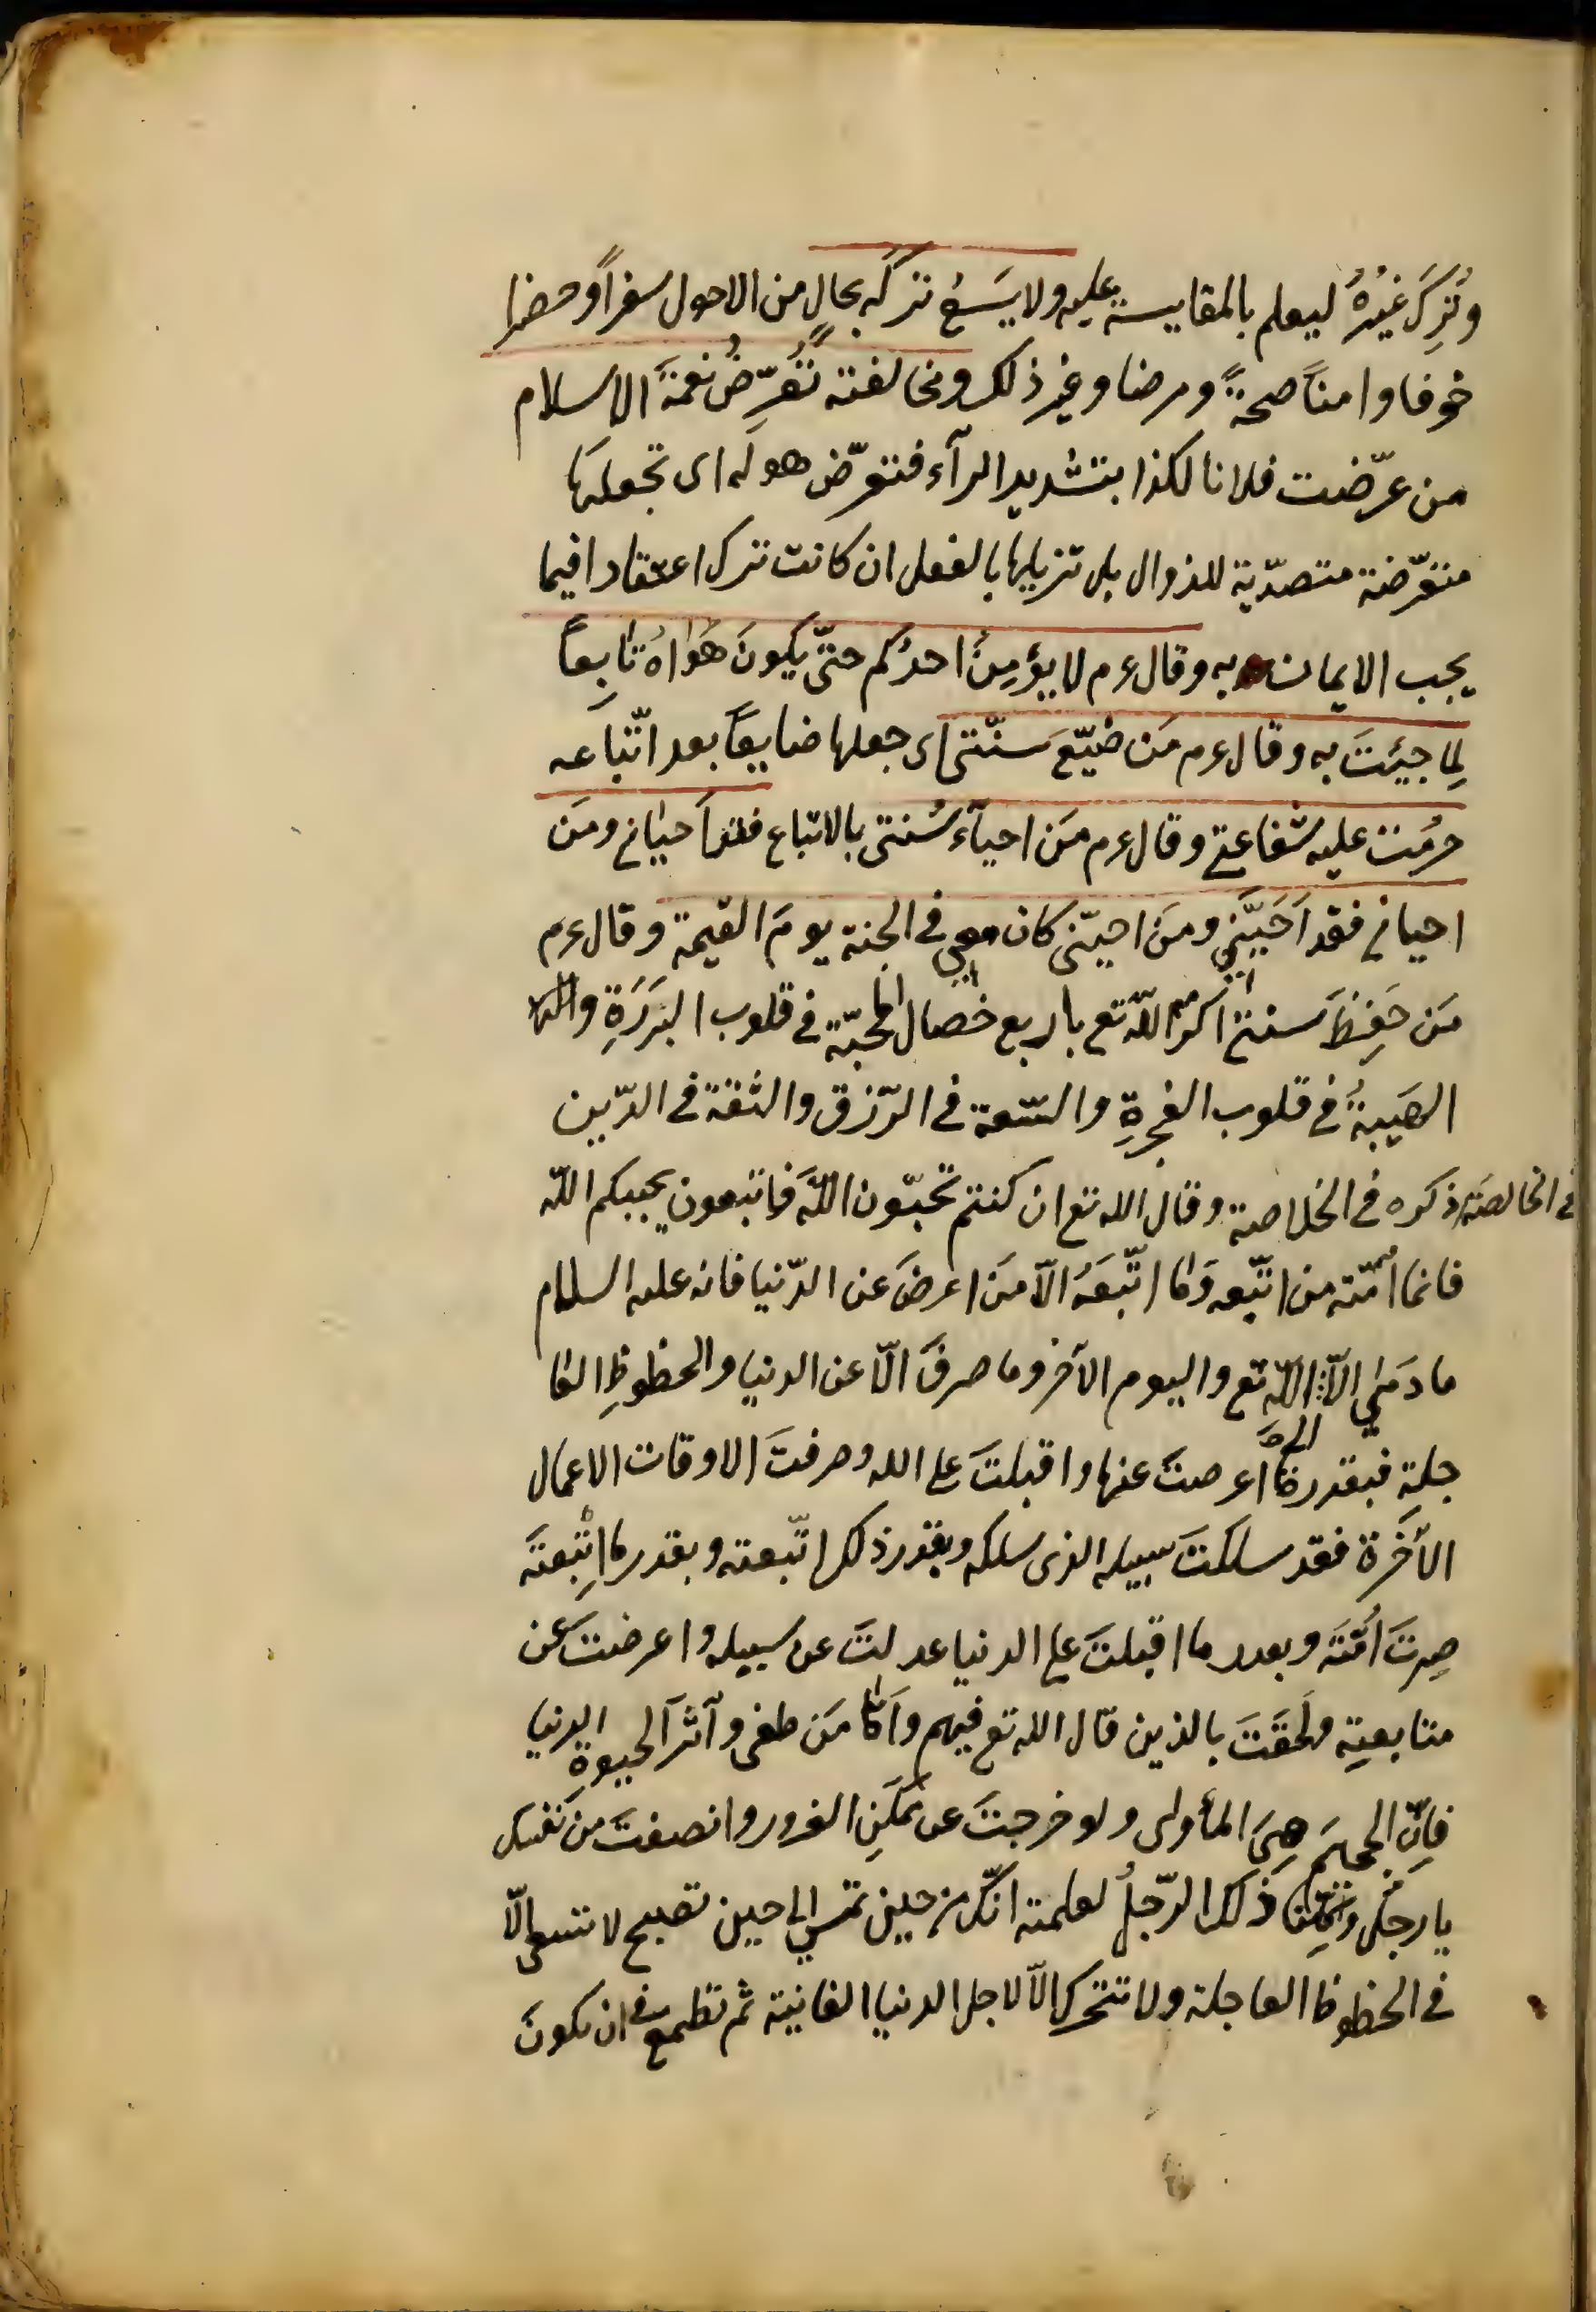 وتُرِكَ غيرُهُ ليعلم بالمقايسة عليه ولا يَسَعُ تركه بحالٍ من الاحول سفراً وحضرا
خوفا وامناً صحةً ومرضا وغير ذلك ومخالفته تُعَرِّضُ نعمةَ الاسلام
من عرّضت فلانا لكذا بتشديد الرآء فتعرّض هو له اى تجعلها
متعرّضة متصدّية للزوال بل تزيلها بالفعل ان كانت ترك اعتقاد فيما
يجب الايمان به وقال ءم لا يؤمِنُ احدُكم حتّى يكونَ هَواهُ تابعاً
لِما جيئتَ به وقال ءم مَن ضيّعَ سنّتى اى جعلها ضايعاً بعد اتّباعه
حرُمت عليه شفاعتى وقال ءم مَن احيآء سُنتى بالاتباع فقد احيانى ومَن
احيانى فقد اَحَبَّنى ومَن احبّنى كان معى فى الجنة يومَ القيمة وقال ءم
مَن حَفِظَ سنتى اكرمه اللّه تع باربع خصال المحبّة فى قلوب البَرَرَةِ
الهَيبةُ فى قلوب الفجرةِ والسّعة فى الرّزق والثقة فى الدّين
ذكره فى الخلاصة وقال الله تع ان كنتم تحبّون اللّهَ فاتبعون يحببكم اللّه
فانما اُمّته من اتّبعه وَما اتّبَعَهُ الاّ مَن اعرضَ عن الدّنيا فانه عليه السلام
ما دَعٰى الاّ الى اللّه تع واليوم الآخر وما صرفَ الاّ عن الدنيا والحظوظِ العا
جلة فبقدر ما اعرضتَ عنها واقبلتَ على الله وصرفتَ الاوقات الاعمال
الآخرة فقد سلكتَ سبيله الذى سلكه وبقدر ذلك اتّبعته وبقدر ما اتّبعتَه
صِرتَ اُمّتَه وبقدر ما اقبلتَ على الدنيا عدلتَ عن سبيله واعرضتَ عن
متابعتِه ولحَقتَ بالذين قال الله تع فيهم واَمّا مَن طغى وآثرَ الحيوةِ الدنيا
فاِنّ الجحيمَ هِىَ المأوى ولو خرجتَ عن مَكمَنِ الغرور وانصفتَ من نفسك
يا رجل وكلنا ذلك الرّجلُ لعلمتَ انّك من حين تمسى الى حين تصبح لا تسعى الاّ
فى الحظوظ العاجلة ولا تتحرك الاّ لاجل الدنيا الفانية ثم تطمع فى ان تكونَ